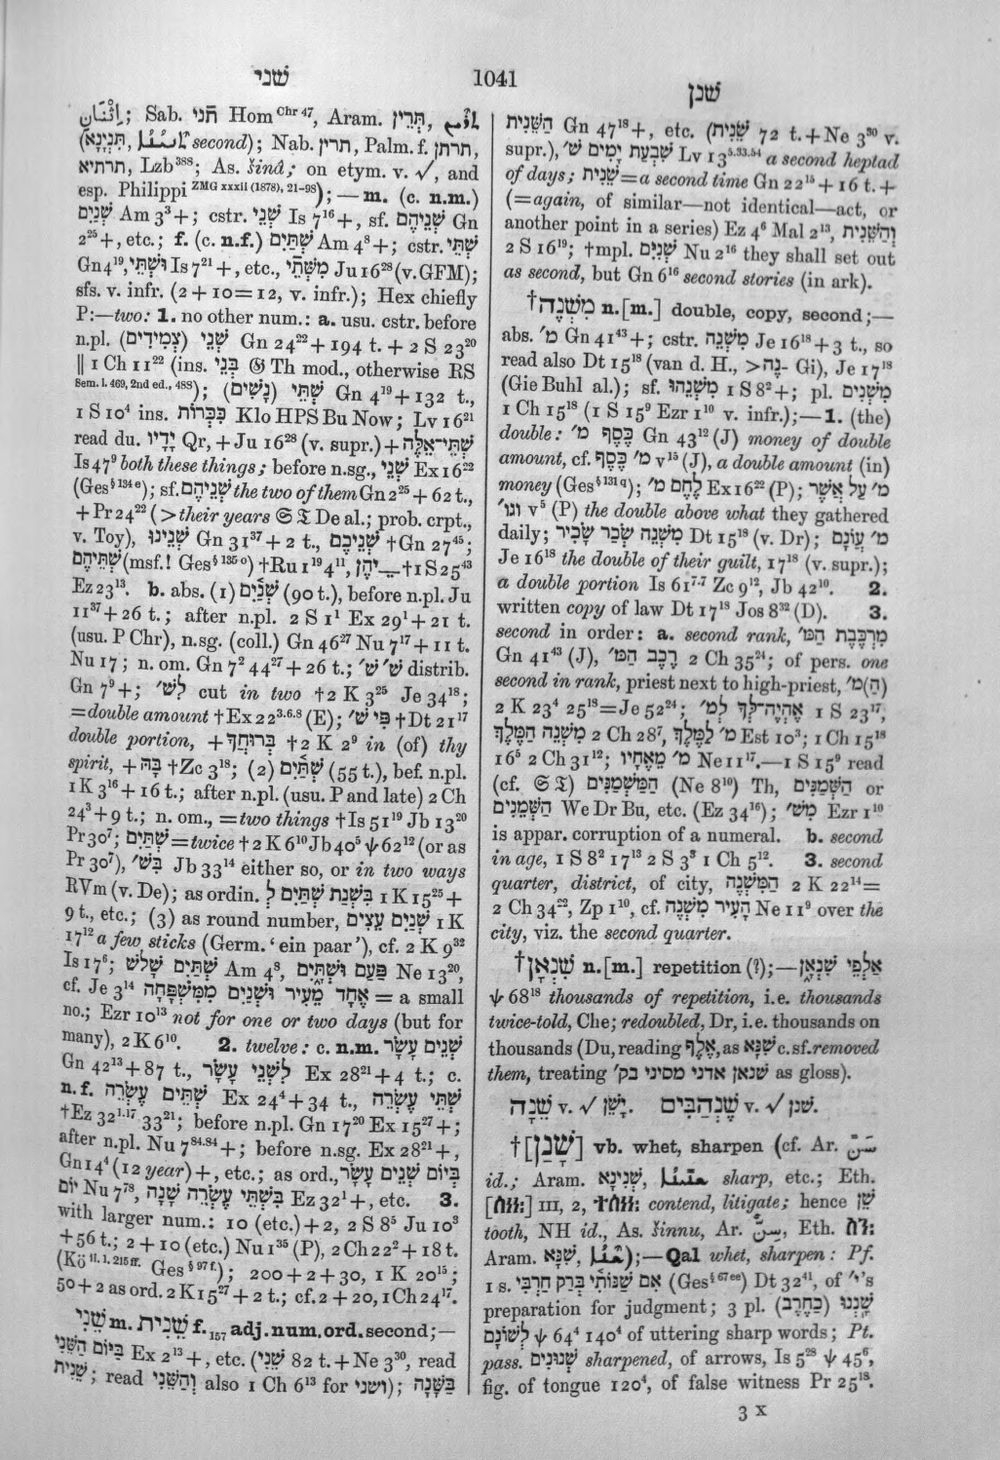 שני
1041
שנן
إِثْنَانِ; Sab. תֿני Hom Chr 47, Aram. תְּרֵין,
(תִּנְיָנָא, second); Nab. תרין, Palm. f. תרתן,
תרתיא, Lzb 388; As. šinâ; on etym. v. √, and
esp. Philippi ZMG xxxii (1878), 21-98);—m. (c. n.m.)
שְׁנַיִם Am 3³+; cstr. שְׁנֵי Is 7¹⁶+, sf. שְׁנֵיהֶם Gn
2²⁵+, etc.; f. (c. n.f.) שְׁתַּיִם Am 4⁸+; cstr. שְׁתֵּי
Gn 4¹⁹, וּשְׁתֵּי Is 7²¹+, etc., מִשְּׁתֵּי Ju 16²⁸ (v. GFM);
sfs. v. infr. (2+10=12, v. infr.); Hex chiefly
P:—two: 1. no other num.: a. usu. cstr. before
n.pl. שְׁנֵי (צְמִידִים) Gn 24²²+194 t.+2 S 23²⁰
‖ 1 Ch 11²² (ins. בְּנֵי 𝔊 Th mod., otherwise RS
Sem. I. 469, 2nd ed., 488); שְׁתֵּי (נָשִׁים) Gn 4¹⁹+132 t.,
1 S 10⁴ ins. כִּכְּרוֹת Klo HPS Bu Now; Lv 16²¹
read du. יָדָיו Qr, +Ju 16²⁸ (v. supr.)+שְׁתֵּי־אֵלֶּה
Is 47⁹ both these things; before n.sg., שְׁנֵי Ex 16²²
(Ges § 134 e); sf. שְׁנֵיהֶם the two of them Gn 2²⁵+62 t.,
+Pr 24²² (>their years 𝔖 𝔗 De al.; prob. crpt.,
v. Toy), שְׁנֵינוּ Gn 31³⁷+2 t., שְׁנֵיכֶם †Gn 27⁴⁵;
שְׁתֵּיהֶם (msf.! Ges § 135 o) †Ru 1¹⁹ 4¹¹, ־ֵיהֶן †1 S 25⁴³
Ez 23¹³. b. abs. (1) שְׁנַיִם (90 t.), before n.pl. Ju
11³⁷+26 t.; after n.pl. 2 S 1¹ Ex 29¹+21 t.
(usu. P Chr), n.sg. (coll.) Gn 46²⁷ Nu 7¹⁷+11 t.
Nu 17; n. om. Gn 7² 44²⁷+26 t.; שׁ׳ שׁ׳ distrib.
Gn 7⁹+; לִשׁ׳ cut in two †2 K 3²⁵ Je 34¹⁸;
=double amount †Ex 22³·⁶·⁸ (E); פִּי שׁ׳ †Dt 21¹⁷
double portion, +בְּרוּחֲךָ †2 K 2⁹ in (of) thy
spirit, +בָּהּ †Zc 3¹⁸; (2) שְׁתַּיִם (55 t.), bef. n.pl.
1 K 3¹⁶+16 t.; after n.pl. (usu. P and late) 2 Ch
24³+9 t.; n. om., =two things †Is 51¹⁹ Jb 13²⁰
Pr 30⁷; שְׁתַּיִם=twice †2 K 6¹⁰ Jb 40⁵ ψ 62¹² (or as
Pr 30⁷), בִּשׁ׳ Jb 33¹⁴ either so, or in two ways
RVm (v. De); as ordin. בִּשְׁנַת שְׁתַּיִם לְ 1 K 15²⁵+
9 t., etc.; (3) as round number, שְׁנַיִם עֵצִים 1 K
17¹² a few sticks (Germ. ‘ein paar’), cf. 2 K 9³²
Is 17⁶; שְׁתַּיִם שָׁלֹשׁ Am 4⁸, פַּעַם וּשְׁתַּיִם Ne 13²⁰,
cf. Je 3¹⁴ אֶחָד מֵעִיר וּשְׁנַיִם מִמִּשְׁפָּחָה = a small
no.; Ezr 10¹³ not for one or two days (but for
many), 2 K 6¹⁰. 2. twelve: c. n.m. שְׁנֵים עָשָׂר
Gn 42¹³+87 t., לִשְׁנֵי עָשָׂר Ex 28²¹+4 t.; c.
n.f. שְׁתֵּים עֶשְׂרֵה Ex 24⁴+34 t., שְׁתֵּי עֶשְׂרֵה
†Ez 32¹·¹⁷ 33²¹; before n.pl. Gn 17²⁰ Ex 15²⁷+;
after n.pl. Nu 7⁸⁴·⁸⁴+; before n.sg. Ex 28²¹+,
Gn 14⁴ (12 year)+, etc.; as ord., בְּיוֹם שְׁנֵים עָשָׂר
יוֹם Nu 7⁷⁸, בִּשְׁתֵּי עֶשְׂרֵה שָׁנָה Ez 32¹+, etc. 3.
with larger num.: 10 (etc.)+2, 2 S 8⁵ Ju 10³
+56 t.; 2+10 (etc.) Nu 1³⁵ (P), 2 Ch 22²+18 t.
(Kö II. 1. 215 ff. Ges § 97 f.); 200+2+30, 1 K 20¹⁵;
50+2 as ord. 2 K 15²⁷+2 t.; cf. 2+20, 1 Ch 24¹⁷.
שֵׁנִי m. שֵׁנִית f. 157 adj. num. ord. second;—
בַּיּוֹם הַשֵּׁנִי Ex 2¹³+, etc. (שֵׁנִי 82 t.+Ne 3³⁰, read
שֵׁנִית; read וְהַשֵּׁנִי also 1 Ch 6¹³ for ושני); בַּשָּׁנָה
הַשֵּׁנִית Gn 47¹⁸+, etc. (שֵׁנִית 72 t.+Ne 3³⁰ v.
supr.), שִׁבְעַת יָמִים שׁ׳ Lv 13⁵·³³·⁵⁴ a second heptad
of days; שֵׁנִית=a second time Gn 22¹⁵+16 t.+
(=again, of similar—not identical—act, or
another point in a series) Ez 4⁶ Mal 2¹³, וְהַשֵּׁנִית
2 S 16¹⁹; †mpl. שְׁנִיִּם Nu 2¹⁶ they shall set out
as second, but Gn 6¹⁶ second stories (in ark).
†מִשְׁנֶה n.[m.] double, copy, second;—
abs. מ׳ Gn 41⁴³+; cstr. מִשְׁנֵה Je 16¹⁸+3 t., so
read also Dt 15¹⁸ (van d. H., >־נֶה Gi), Je 17¹⁸
(Gie Buhl al.); sf. מִשְׁנֵהוּ 1 S 8²+; pl. מִשְׁנִים
1 Ch 15¹⁸ (1 S 15⁹ Ezr 1¹⁰ v. infr.);—1. (the)
double: כֶּסֶף מ׳ Gn 43¹² (J) money of double
amount, cf. מ׳ כֶּסֶף v¹⁵ (J), a double amount (in)
money (Ges § 131 q); לֶחֶם מ׳ Ex 16²² (P); מ׳ עַל אֲשֶׁר
וגו׳ v⁵ (P) the double above what they gathered
daily; מִשְׁנֶה שְׂכַר שָׂכִיר Dt 15¹⁸ (v. Dr); מ׳ עֲוֺנָם
Je 16¹⁸ the double of their guilt, 17¹⁸ (v. supr.);
a double portion Is 61⁷·⁷ Zc 9¹², Jb 42¹⁰. 2.
written copy of law Dt 17¹⁸ Jos 8³² (D). 3.
second in order: a. second rank, מִרְכֶּבֶת הַמּ׳
Gn 41⁴³ (J), רֶכֶב הַמּ׳ 2 Ch 35²⁴; of pers. one
second in rank, priest next to high-priest, (הַ)מ׳
2 K 23⁴ 25¹⁸=Je 52²⁴; אֶהְיֶה־לְּךָ לְמ׳ 1 S 23¹⁷,
מִשְׁנֵה הַמֶּלֶךְ 2 Ch 28⁷, מ׳ לַמֶּלֶךְ Est 10³; 1 Ch 15¹⁸
16⁵ 2 Ch 31¹²; מ׳ מֵאֶחָיו Ne 11¹⁷.—1 S 15⁹ read
(cf. 𝔖 𝔗) הַמִּשְׁמַנִּים (Ne 8¹⁰) Th, הַשְּׁמֵנִים or
הַשְּׁמֵנִים We Dr Bu, etc. (Ez 34¹⁶); מִשׁ׳ Ezr 1¹⁰
is appar. corruption of a numeral. b. second
in age, 1 S 8² 17¹³ 2 S 3³ 1 Ch 5¹². 3. second
quarter, district, of city, הַמִּשְׁנֶה 2 K 22¹⁴=
2 Ch 34²², Zp 1¹⁰, cf. הָעִיר מִשְׁנֶה Ne 11⁹ over the
city, viz. the second quarter.
†שִׁנְאָן n.[m.] repetition (?);—אַלְפֵי שִׁנְאָן
ψ 68¹⁸ thousands of repetition, i.e. thousands
twice-told, Che; redoubled, Dr, i.e. thousands on
thousands (Du, reading אֶלֶף, as שנא c. sf. removed
them, treating שנאן אדני מסיני בק׳ as gloss).
שֵׁנָה v. √ יָשֵׁן. שֶׁנְהַבִּים v. √ שנן.
†[שָׁנַן] vb. whet, sharpen (cf. Ar. سَنَّ
id.; Aram. שְׁנִינָא, sharp, etc.; Eth.
III, 2, contend, litigate; hence שֵׁן
tooth, NH id., As. šinnu, Ar. سِنّ, Eth.
Aram. שִׁנָּא,);—Qal whet, sharpen: Pf.
1 s. אִם שַׁנּוֹתִי בְּרַק חַרְבִּי (Ges § 67 ee) Dt 32⁴¹, of י׳'s
preparation for judgment; 3 pl. שָׁנְנוּ (כַחֶרֶב)
לְשׁוֹנָם ψ 64⁴ 140⁴ of uttering sharp words; Pt.
pass. שְׁנוּנִים sharpened, of arrows, Is 5²⁸ ψ 45⁶,
fig. of tongue 120⁴, of false witness Pr 25¹⁸.
3 X